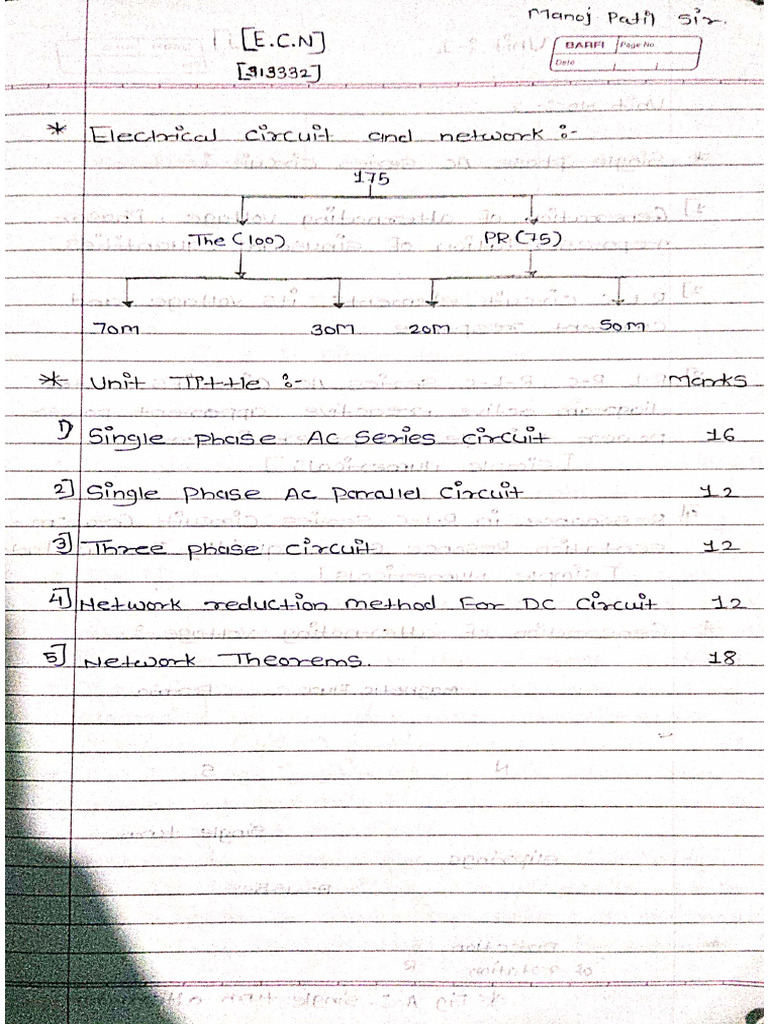 Manoj Patil Sir.
[E.C.N]
BARFI Page No.
Date
[313332]
* Electrical circuit and network :-
175
The (100) PR (75)
70M 30M 20M 50M
* Unit Tittle :- Marks
1) Single phase AC Series circuit 16
2] Single Phase AC parallel circuit 12
3] Three phase circuit 12
4] Network reduction method For DC circuit 12
5] Network Theorems. 18